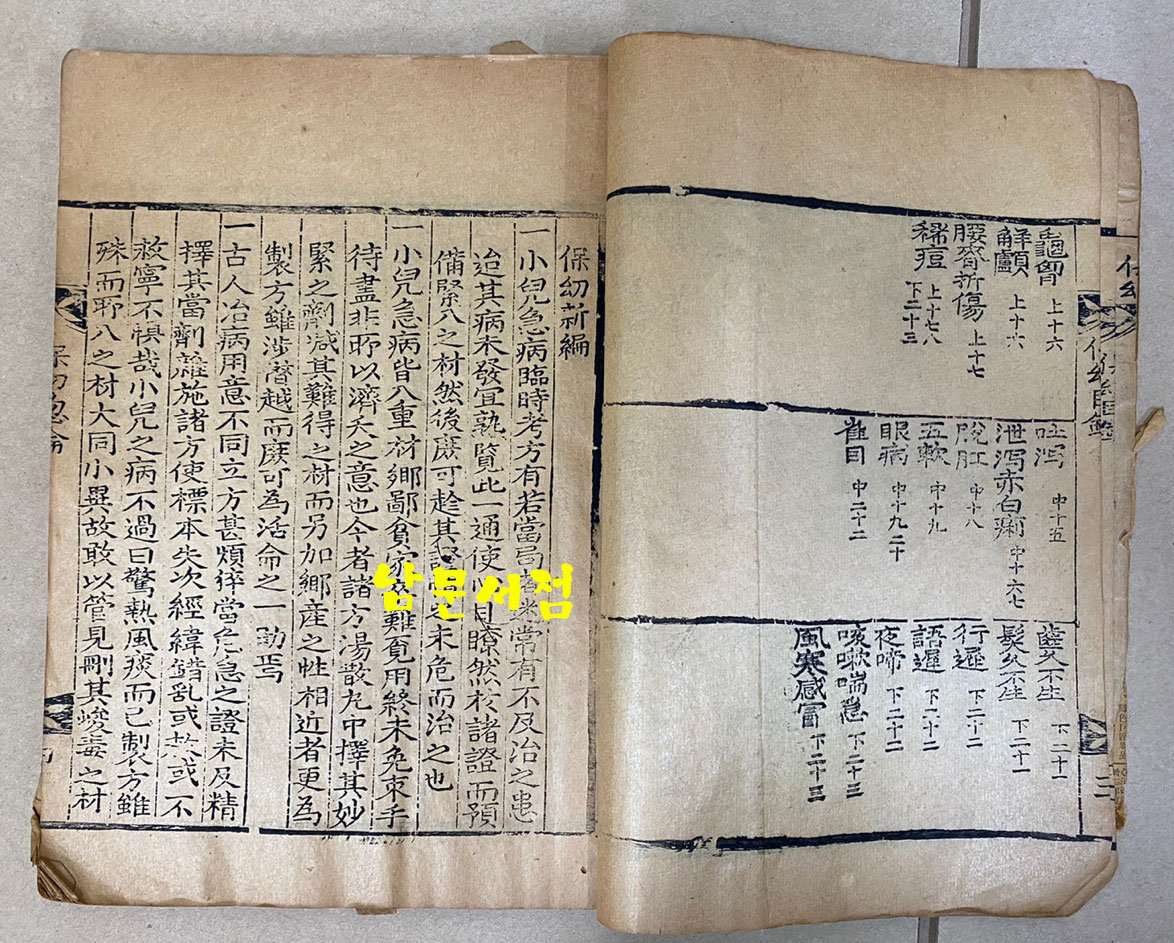 保幼目錄
三
龜胷 上十六
解顱 上十六
腰脊折傷 上十七
稀痘 上十七八 下二十三
吐瀉 中十五
泄瀉赤白痢 中十六七
脫肛 中十八
五軟 中十九
眼病 中十九二十
雀目 中二十二
齒久不生 下二十一
髮久不生 下二十一
行遲 下二十二
語遲 下二十二
夜啼 下二十二
咳嗽喘急 下二十三
風寒感冒 下二十三
保幼新編
一小兒急病臨時考方有若當局者迷常有不及治之患
迨其病未發宜熟覽此一通使心目瞭然於諸證而預
備緊入之材然後庶可趁其證當其未危而治之也
一小兒急病皆入重材鄉鄙貧家卒難覓用終未免束手
待盡非所以濟夭之意也今者諸方湯散丸中擇其妙
緊之劑减其難得之材而另加鄉産之性相近者更爲
製方雖涉僭越而庶可爲活命之一助焉
一古人治病用意不同立方甚煩猝當危急之證未及精
擇其當劑雜施諸方使標本失次經緯錯亂或救或不
救寧不惧哉小兒之病不過曰驚熱風痰而已製方雖
殊而所入之材大同小異故敢以管見刪其峻毒之材
남문서점